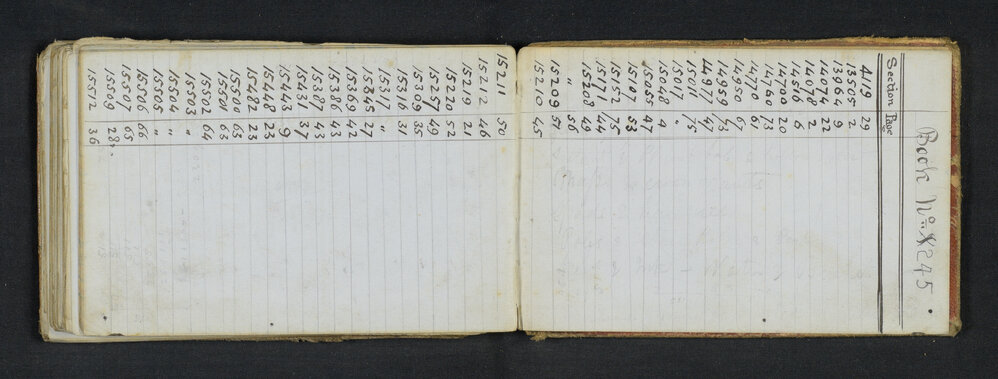 Book No. X245
Section Page
419 29
13505 2
13964 9
14074 22
14078 2
14516 6
14700 20
14760 73
14770 61
14950 67
14959
14977 47
15011 75
15017 "
15048 9
15055 47
15107 53
15152 75
15171 44
15208 49
" 56
15209 51
15210 45
15211 50
15212 46
15219 21
15220 52
15257 49
15309 35
15316 31
15317 "
15345 27
15369 42
15386 43
15387 43
15431 37
15443 9
15468 23
15482 23
15500 65
15501 63
15502 64
15503 "
15504 "
15505 "
15506 66
15507 65
15509
15512 36